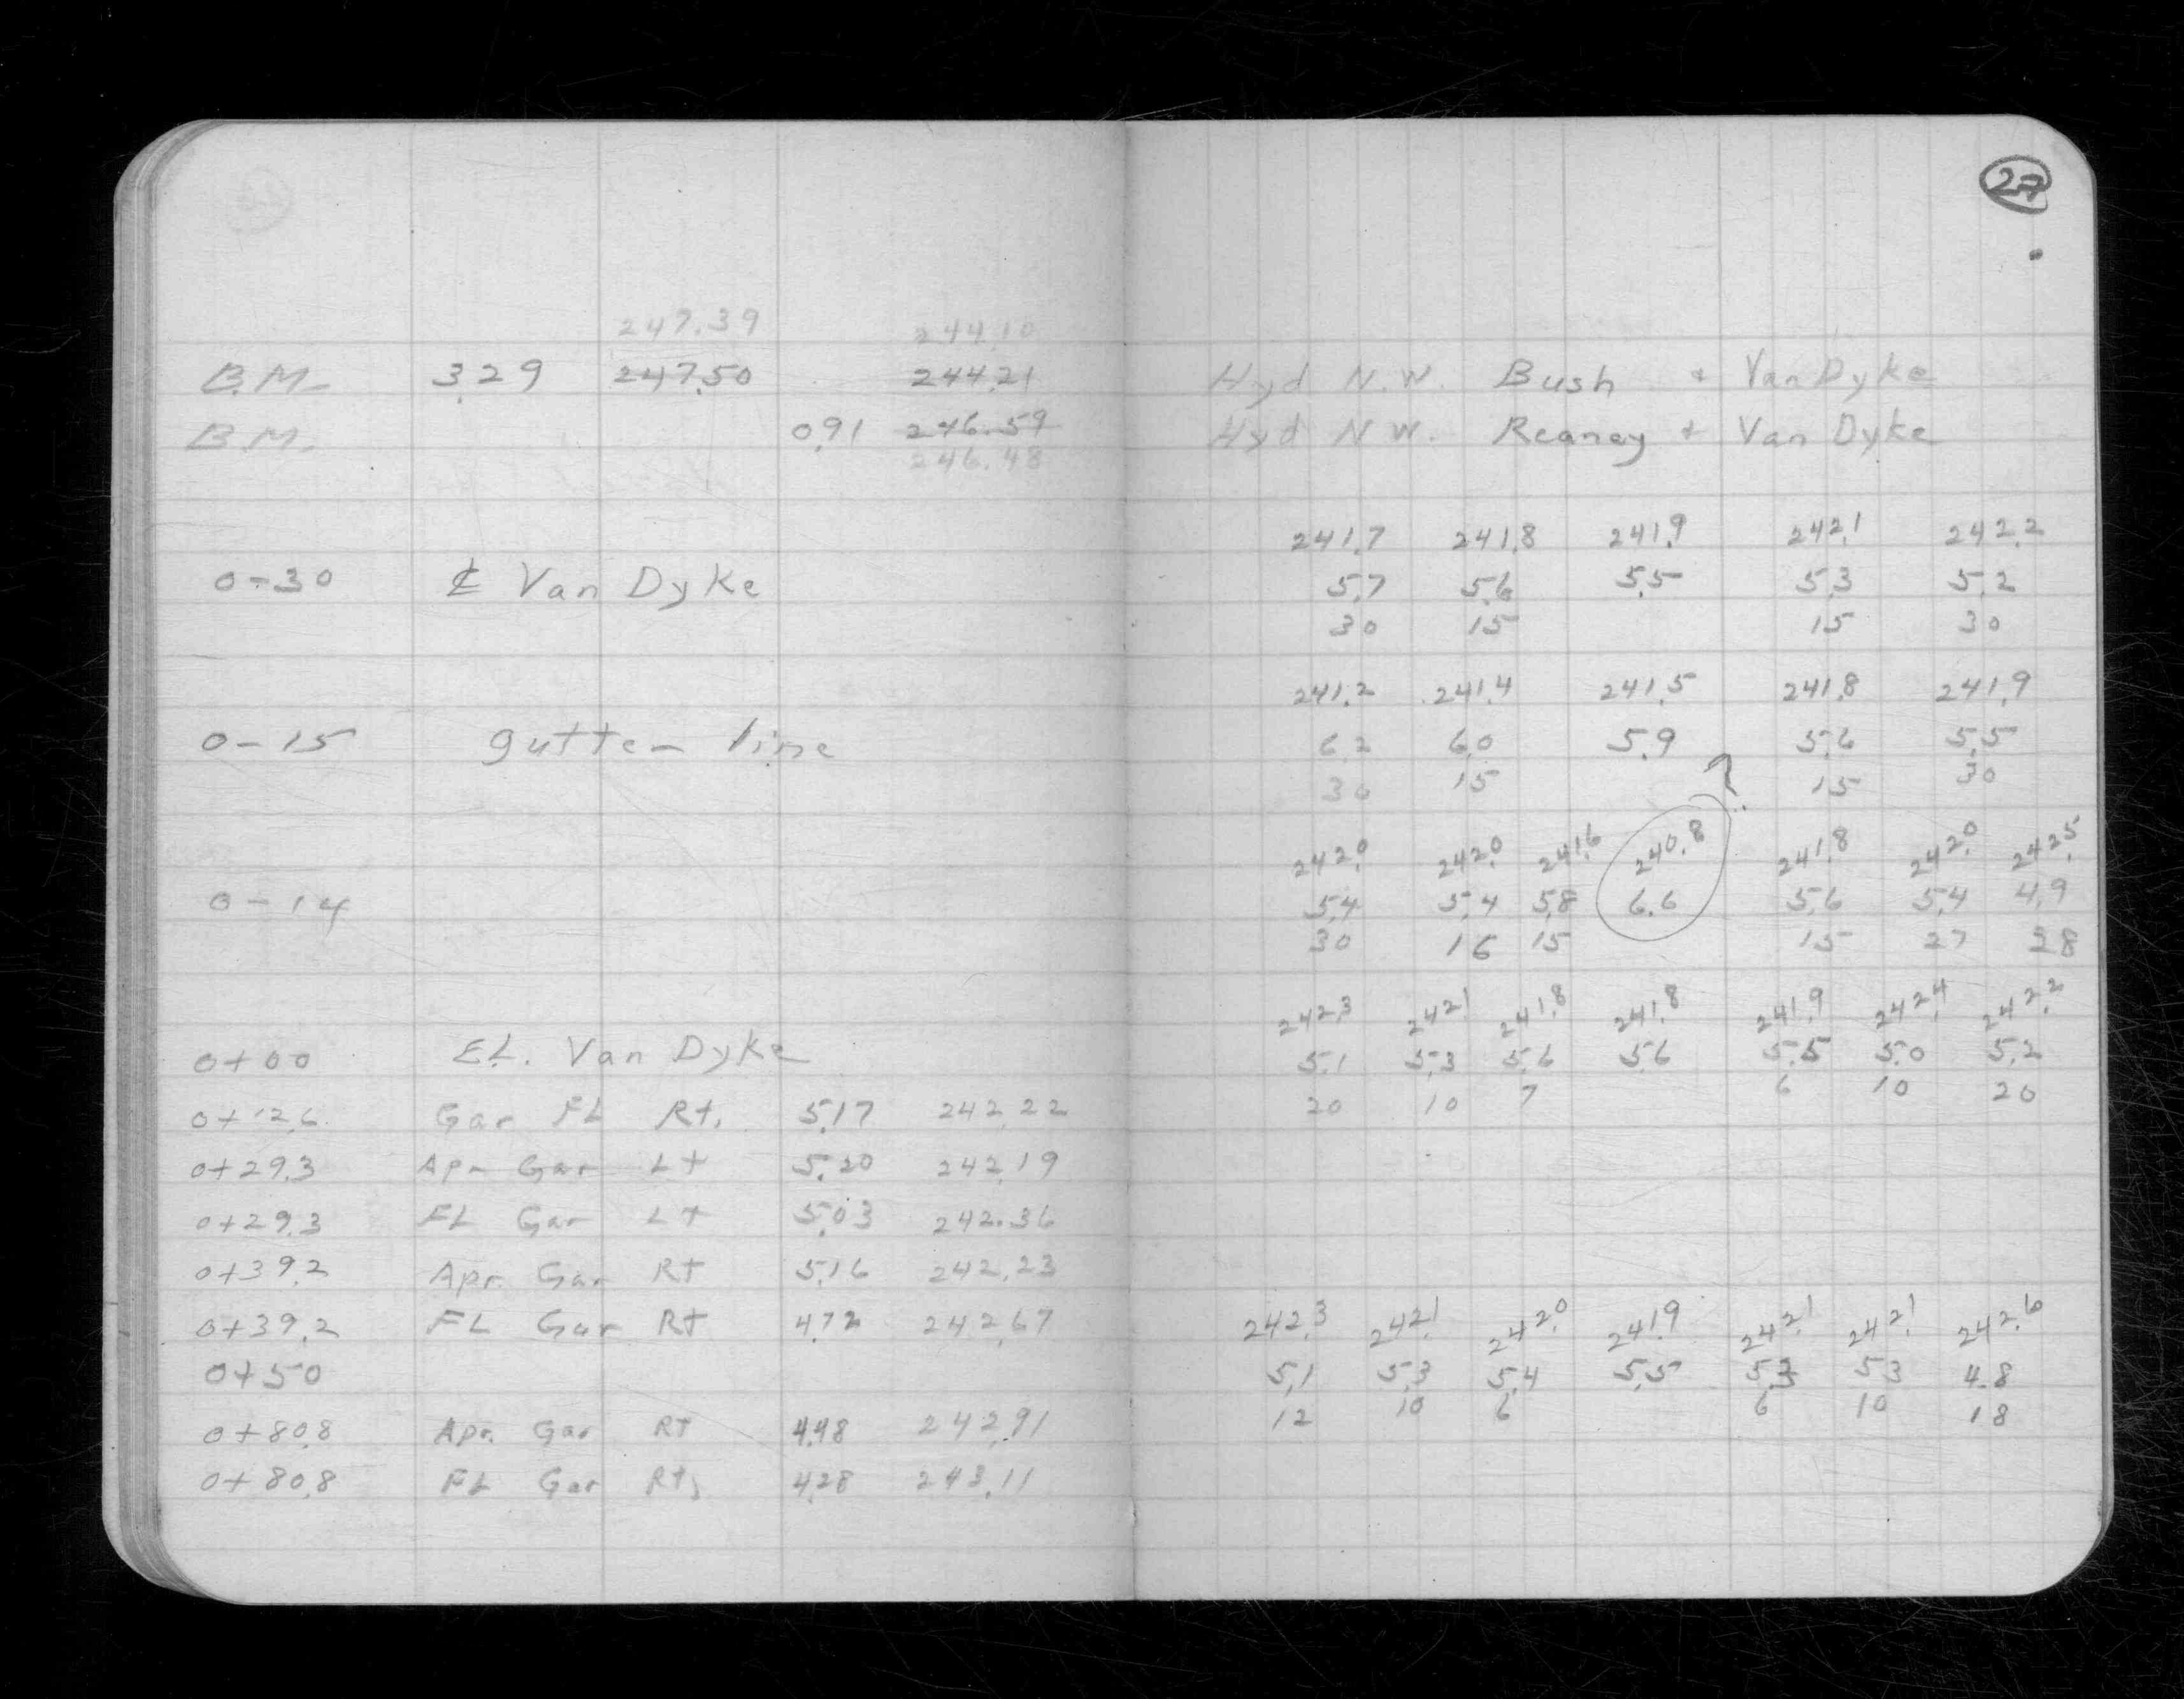 27
247.39 244.10
B.M. 3.29 247.50 244.21 Hyd N.W. Bush + Van Dyke
B.M. 0.91 246.59 Hyd N.W. Reaney + Van Dyke
246.48
241.7 241.8 241.9 242.1 242.2
0-30 ℄ Van Dyke 5.7 5.6 5.5 5.3 5.2
30 15 15 30
241.2 241.4 241.5 241.8 241.9
0-15 gutter line 6.2 6.0 5.9 5.6 5.5
30 15 ? 15 30
242.0 242.0 241.6 240.8 241.8 242.0 242.5
0-14 5.4 5.4 5.8 6.6 5.6 5.4 4.9
30 16 15 15 27 28
242.3 242.1 241.8 241.8 241.9 242.4 242.2
0+00 EL. Van Dyke 5.1 5.3 5.6 5.6 5.5 5.0 5.2
20 10 7 6 10 20
0+12.6 Gar FL Rt. 5.17 242.22
0+29.3 Apr Gar Lt 5.20 242.19
0+29.3 FL Gar Lt 5.03 242.36
0+39.2 Apr. Gar Rt 5.16 242.23
0+39.2 FL Gar Rt 4.72 242.67 242.3 242.1 242.0 241.9 242.1 242.1 242.6
0+50 5.1 5.3 5.4 5.5 5.3 5.3 4.8
12 10 6 6 10 18
0+80.8 Apr. Gar Rt 4.48 242.91
0+80.8 FL Gar Rt. 4.28 243.11